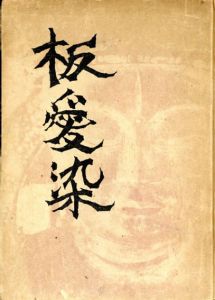 板愛染